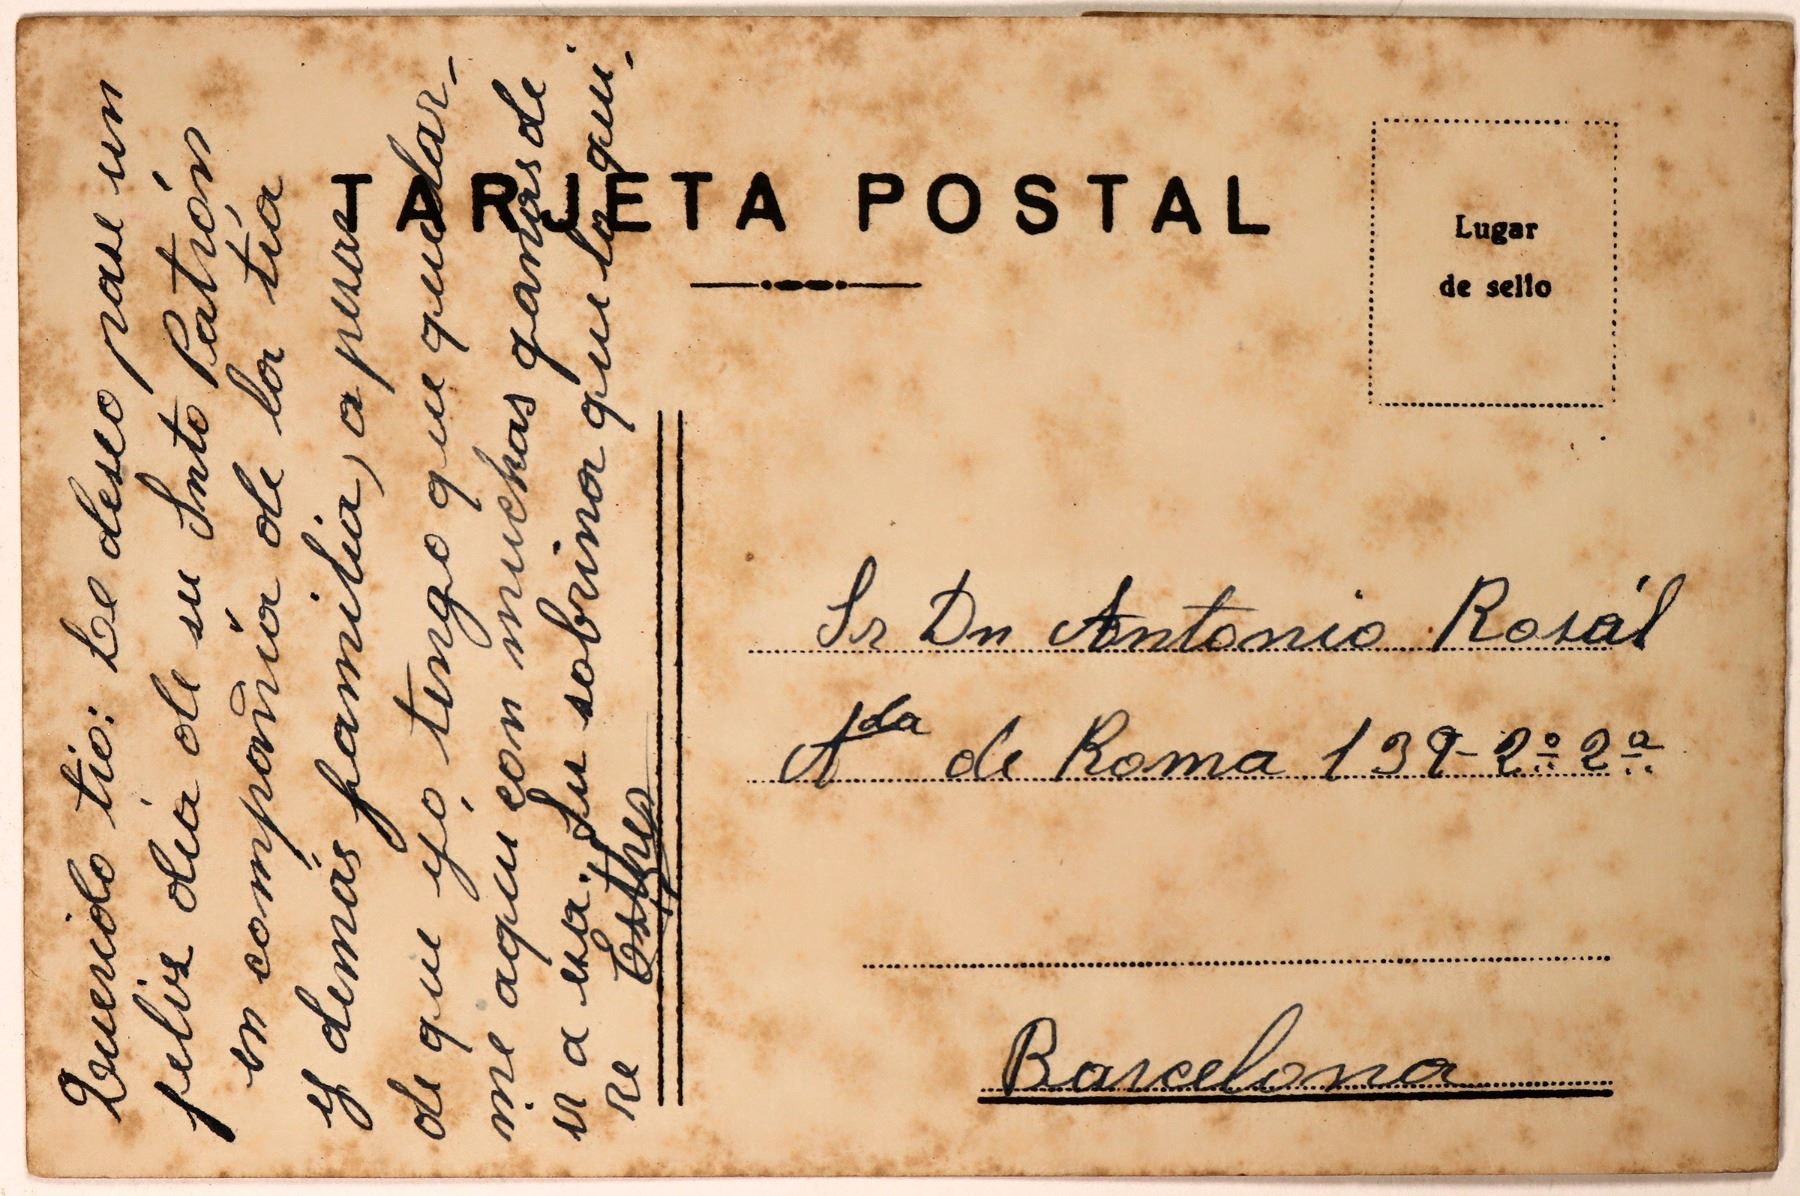 TARJETA POSTAL
Lugar
de sello
Querido tio: Le deseo pase un
feliz dia de su Snto Patrón
en compañia de la tía
y demás familia, a pesar
de que yó tengo que quedar-
me aqui con muchas ganas de
ir a esa. Su sobrina que lo qui-
re Esther
Sr Dn Antonio Rosál
Ada de Roma 139-2º 2ª
Barcelona